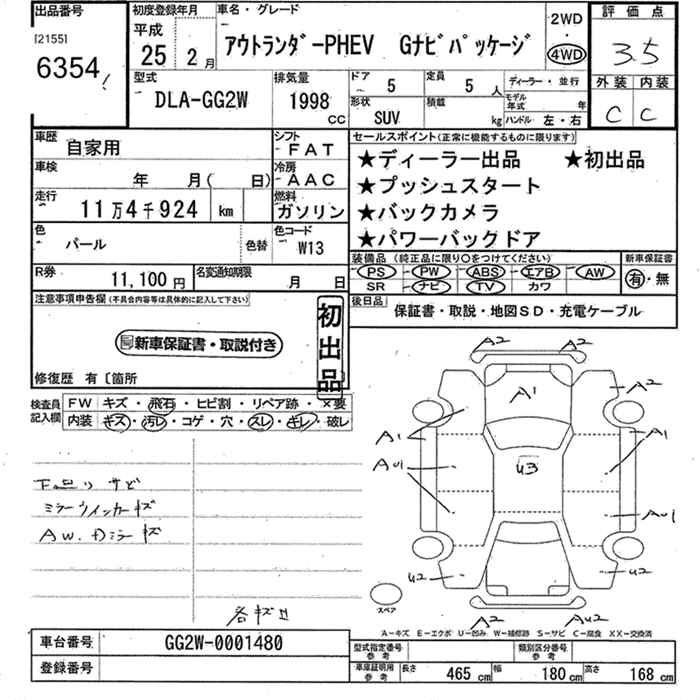 出品番号
[2155]
6354
初度登録年月
平成
25 2月
車名・グレード
アウトランダーPHEV Gナビパッケージ
2WD
・
4WD
評価点
3.5
外装 内装
C C
型式
DLA-GG2W
排気量
1998
CC
ドア 5
定員 5人
ディーラー・並行
形状 SUV
積載 kg
モデル年式 年
ハンドル 左・右
車歴 自家用
シフト FAT
車検 年 月( 日)
冷房 AAC
走行 11万4千924 km
燃料 ガソリン
色 パール 色替
色コード W13
R券 11,100円
名変通知期限 月 日
セールスポイント(正常に機能するものに限ります)
★ディーラー出品 ★初出品
★プッシュスタート
★バックカメラ
★パワーバックドア
装備品 (純正品に限り〇をつけてください)
新車保証書
PS PW ABS エアB AW
有・無
SR ナビ TV カワ
後日品 保証書・取説・地図SD・充電ケーブル
注意事項申告欄(不具合内容等は具体的に記入して下さい)
新車保証書・取説付き
初出品
修復歴 有〔箇所
検査員記入欄
FW キズ・飛石・ヒビ割・リペア跡・×要
内装 キズ・汚レ・コゲ・穴・スレ・キレ・破レ
下回りサビ
ミラーウインカーキズ
AW.Dミラーキズ
A2 A2
A1
A2
A1 A1
AU1 U3
AU1
U2 U2
A2 AU2
スペア
A-キズ E-エクボ U-凹み W-補修跡 S-サビ C-腐食 XX-交換済
車台番号 GG2W-0001480
登録番号
型式指定番号 参考
類別区分番号 参考
車庫証明用 参考 長さ 465cm 幅 180cm 高さ 168cm